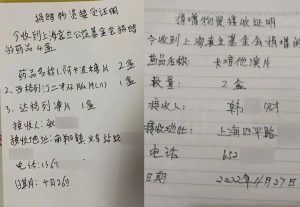 捐赠物资接收证明
今收到上海壹立公益基金会捐赠
的药品4盒
药品名称1.阿卡波糖片 2盒
1盒
3、达格列净片 1盒
接收人:
接收地址:南翔镇
电话:1367
日期:4月26日
捐赠物资接收证明
今收到上海壹立基金会捐赠的
药品名称: 卡博他滨片
数量: 2盒
接收人: 韩
接收地址: 上海四平路
电话 652
日期 2022年4月27日